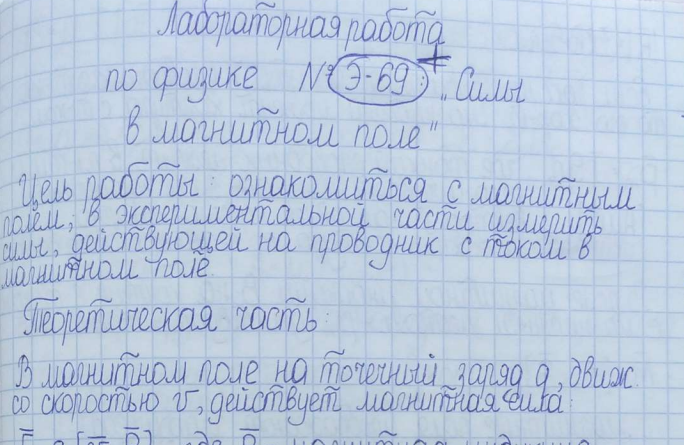 Лабораторная работа
по физике № Э-69 „Силы
в магнитном поле"
Цель работы: ознакомиться с магнитным
полем, в экспериментальной части измерить
силы, действующей на проводник с током в
магнитном поле.
Теоретическая часть:
В магнитном поле на точечный заряд q, движ.
со скоростью v, действует магнитная сила: